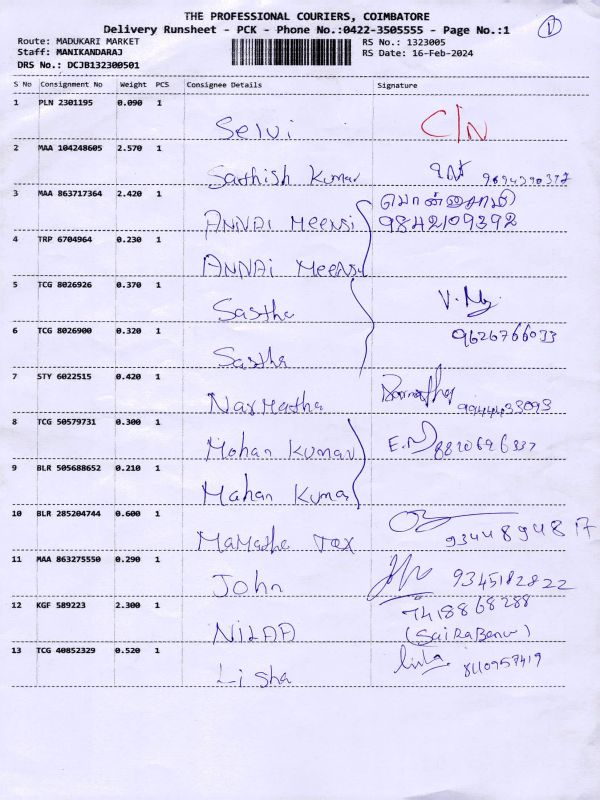 THE PROFESSIONAL COURIERS, COIMBATORE
Delivery Runsheet - PCK - Phone No.:0422-3505555 - Page No.:1
Route: MADUKARI MARKET
Staff: MANIKANDARAJ
DRS No.: DCJB132300501
RS No.: 1323005
RS Date: 16-Feb-2024
S No Consignment No Weight PCS Consignee Details Signature
1 PLN 2301195 0.090 1 Selvi C/N
2 MAA 104248605 2.570 1 Sathish Kumar
3 MAA 863717364 2.420 1 ANNAI MEENSI பொன்னுசாமி
9842109392
4 TRP 6704964 0.230 1 ANNAI MEENSI
5 TCG 8026926 0.370 1 Sastha
6 TCG 8026900 0.320 1 Sastha 9626766033
7 STY 6022515 0.420 1 Narmatha 9944433093
8 TCG 50579731 0.300 1 Mohan Kumar 8820696337
9 BLR 505688652 0.210 1 Mahan Kumar
10 BLR 285204744 0.600 1 Mamatha Tax 9344894817
11 MAA 863275550 0.290 1 John 9345182822
12 KGF 589223 2.300 1 NILAA 7418868288
(SaiRaBanu)
13 TCG 40852329 0.520 1 Lisha 8110957419